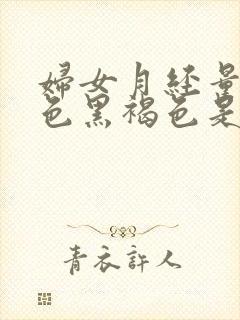 婦女月經量
色黑褐色是
青衣許人